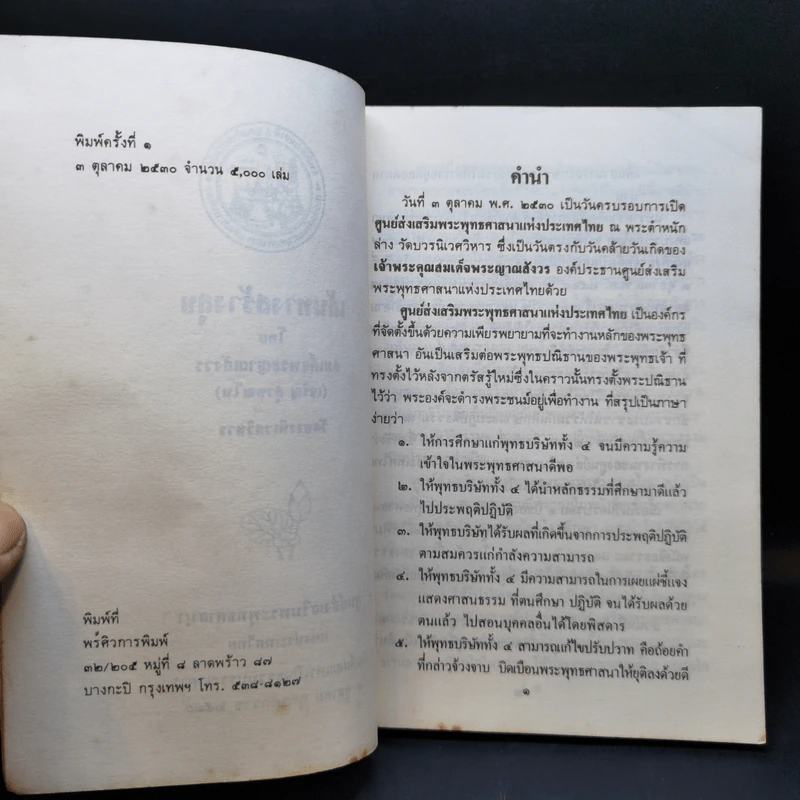 พิมพ์ครั้งที่ ๑
๓ ตุลาคม ๒๕๓๐ จำนวน ๕,๐๐๐ เล่ม
พิมพ์ที่
พรศิวการพิมพ์
๓๒/๒๐๕ หมู่ที่ ๘ ลาดพร้าว ๘๗
บางกะปิ กรุงเทพฯ โทร. ๕๓๘-๘๑๒๗
คำนำ
วันที่ ๓ ตุลาคม พ.ศ. ๒๕๓๐ เป็นวันครบรอบการเปิด
ศูนย์ส่งเสริมพระพุทธศาสนาแห่งประเทศไทย ณ พระตำหนัก
ล่าง วัดบวรนิเวศวิหาร ซึ่งเป็นวันตรงกับวันคล้ายวันเกิดของ
เจ้าพระคุณสมเด็จพระญาณสังวร องค์ประธานศูนย์ส่งเสริม
พระพุทธศาสนาแห่งประเทศไทยด้วย
ศูนย์ส่งเสริมพระพุทธศาสนาแห่งประเทศไทย เป็นองค์กร
ที่จัดตั้งขึ้นด้วยความเพียรพยายามที่จะทำงานหลักของพระพุทธ
ศาสนา อันเป็นเสริมต่อพระพุทธปณิธานของพระพุทธเจ้า ที่
ทรงตั้งไว้หลังจากตรัสรู้ใหม่ซึ่งในคราวนั้นทรงตั้งพระปณิธาน
ไว้ว่า พระองค์จะดำรงพระชนม์อยู่เพื่อทำงาน ที่สรุปเป็นภาษา
ง่ายว่า
๑. ให้การศึกษาแก่พุทธบริษัททั้ง ๔ จนมีความรู้ความ
เข้าใจในพระพุทธศาสนาดีพอ
๒. ให้พุทธบริษัททั้ง ๔ ได้นำหลักธรรมที่ศึกษามาดีแล้ว
ไปประพฤติปฏิบัติ
๓. ให้พุทธบริษัทได้รับผลที่เกิดขึ้นจากการประพฤติปฏิบัติ
ตามสมควรแก่กำลังความสามารถ
๔. ให้พุทธบริษัททั้ง ๔ มีความสามารถในการเผยแผ่ชี้แจง
แสดงศาสนธรรม ที่ตนศึกษา ปฏิบัติ จนได้รับผลด้วย
ตนแล้ว ไปสอนบุคคลอื่นได้โดยพิสดาร
๕. ให้พุทธบริษัททั้ง ๔ สามารถแก้ไขปรับปราท คือถ้อยคำ
ที่กล่าวจ้วงจาบ บิดเบือนพระพุทธศาสนาให้ยุติลงด้วยดี
๑